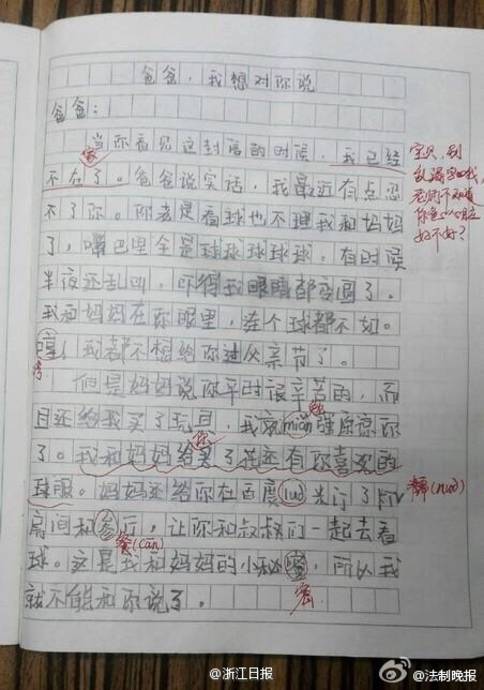 爸爸，我想对你说
爸爸：
当你看见这封信的时候，我已经
家
不在了。爸爸说实话，我最近有点忍
不了你。你老是看球也不理我和妈妈
了，嘴巴里全是球球球球球，有时候
半夜还乱叫，吓得我眼睛都变圆了。
我和妈妈在你眼里，连个球都不如。
哼！我都不想给你过父亲节了。
但是妈妈说你平时很辛苦的，而
勉
且还给我买了玩具，我就miǎn强原谅你
你
了。我和妈妈给买了花还有你喜欢的
球服。妈妈还给你在百度luò米订了KTV
糯(nuò)
房间和参厅，让你和叔叔们一起去看
餐(cān)
球。这是我和妈妈的小秘蜜，所以我
密
就不能和你说了。
宝贝，别
乱漏字哦，
好不好？
@浙江日报
@法制晚报